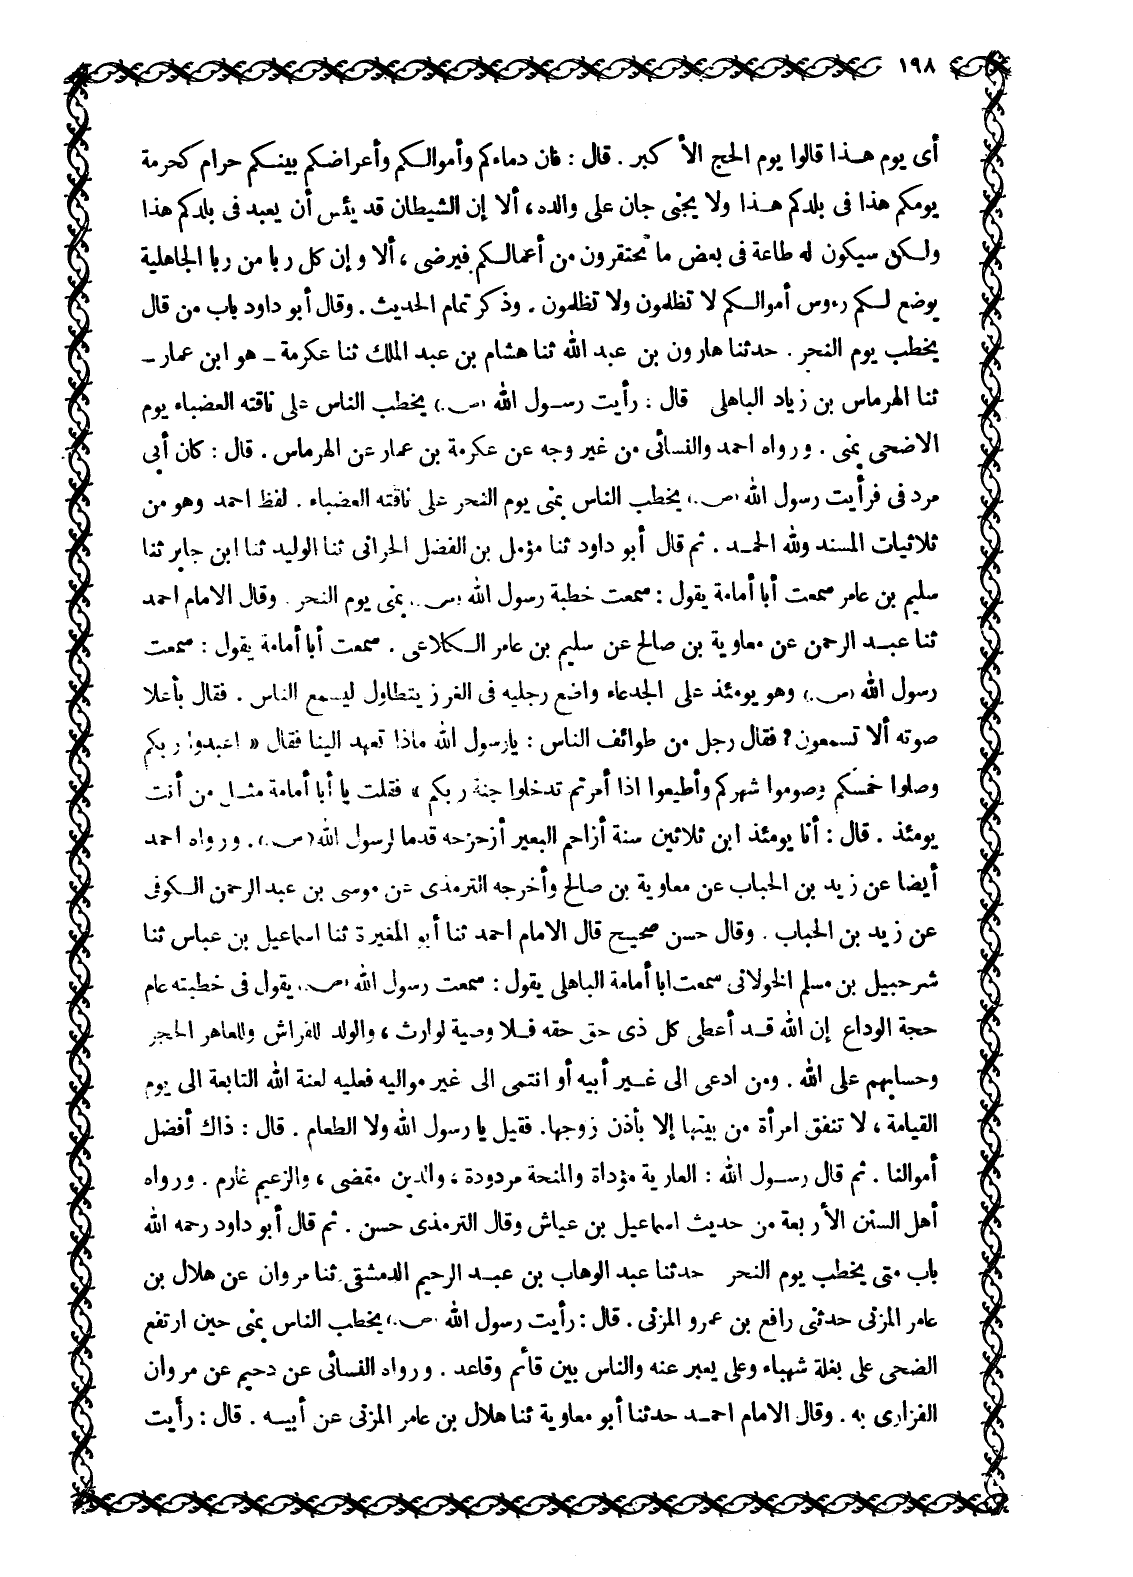 ١٩٨
أى يوم هـذا قالوا يوم الحج الأكبر . قال : فان دماءكم وأموالـكم وأعراضكم بينـكم حرام كحرمة
يومكم هذا فى بلدكم هـذا ولا يجنى جان على والده، ألا إن الشيطان قد يئس أن يعبد فى بلدكم هذا
ولـكن سيكون له طاعة فى بعض ما تحتقرون من أعمالـكم فيرضى ، ألا وإن كل ربا من ربا الجاهلية
يوضع لـكم رءوس أموالـكم لا تظلمون ولا تظلمون . وذكر تمام الحديث . وقال أبو داود باب من قال
يخطب يوم النحر . حدثنا هارون بن عبد الله ثنا هشام بن عبد الملك ثنا عكرمة ـ هو ابن عمار ـ
ثنا الهرماس بن زياد الباهلى قال : رأيت رسـول الله (ص.) يخطب الناس على ناقته العضباء يوم
الاضحى بمنى . ورواه احمد والنسائى من غير وجه عن عكرمة بن عمار عن الهرماس . قال : كان أبى
مردفى فرأيت رسول الله (ص.) يخطب الناس بمنى يوم النحر على ناقته العضباء . لفظ احمد وهو من
ثلاثيات المسند ولله الحمـد . ثم قال أبو داود ثنا مؤمل بن الفضل الحرانى ثنا الوليد ثنا ابن جابر ثنا
سليم بن عامر سمعت أبا أمامة يقول : سمعت خطبة رسول الله (ص.) بمنى يوم النحر . وقال الامام احمد
ثنا عبـد الرحمن عن معاوية بن صالح عن سليم بن عامر الـكلاعى . سمعت أبا أمامة يقول : سمعت
رسول الله (ص.) وهو يومئذ على الجدعاء واضع رجليه فى الغرز يتطاول ليسمع الناس . فقال بأعلا
صوته ألا تسمعون؟ فقال رجل من طوائف الناس : يارسول الله ماذا تعهد الينا فقال « اعبدوا ربكم
وصلوا خمسكم وصوموا شهركم وأطيعوا اذا أمرتم تدخلوا جنة ربكم » فقلت يا أبا أمامة مثـل من أنت
يومئذ . قال : أنا يومئذ ابن ثلاثين سنة أزاحم البعير أزحزحه قدما لرسول الله (ص.) . ورواه احمد
أيضا عن زيد بن الحباب عن معاوية بن صالح وأخرجه الترمذى عن موسى بن عبد الرحمن الـكوفى
عن زيد بن الحباب . وقال حسن صحيح قال الامام احمد ثنا أبو المغيرة ثنا اسماعيل بن عباس ثنا
شرحبيل بن مسلم الخولانى سمعت ابا أمامة الباهلى يقول : سمعت رسول الله (ص.) يقول فى خطبته عام
حجة الوداع إن الله قـد أعطى كل ذى حق حقه فـلا وصية لوارث ، والولد للفراش وللعاهر الحجر
وحسابهم على الله . ومن ادعى الى غـير أبيه أو انتمى الى غير مواليه فعليه لعنة الله التابعة الى يوم
القيامة ، لا تنفق امرأة من بيتها إلا بأذن زوجها. فقيل يا رسول الله ولا الطعام . قال : ذاك أفضل
أموالنا . ثم قال رسـول الله : العارية مؤداة والمنحة مردودة ، والدين مقضى ، والزعيم غارم . ورواه
أهل السنن الأربعة من حديث اسماعيل بن عياش وقال الترمذى حسن . ثم قال أبو داود رحمه الله
باب متى يخطب يوم النحر حدثنا عبد الوهاب بن عبـد الرحيم الدمشقى ثنا مروان عن هلال بن
عامر المزنى حدثنى رافع بن عمرو المزنى . قال : رأيت رسول الله (ص.) يخطب الناس بمنى حين ارتفع
الضحى على بغلة شهباء وعلى يعبر عنه والناس بين قائم وقاعد . ورواه النسائى عن دحيم عن مروان
الفزارى به . وقال الامام احمـد حدثنا أبو معاوية ثنا هلال بن عامر المزنى عن أبيـه . قال : رأيت